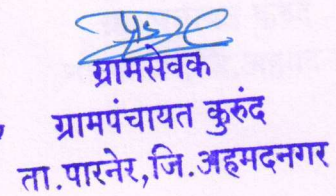 ग्रामसेवक
ग्रामपंचायत कुरुंद
ता.पारनेर,जि.अहमदनगर